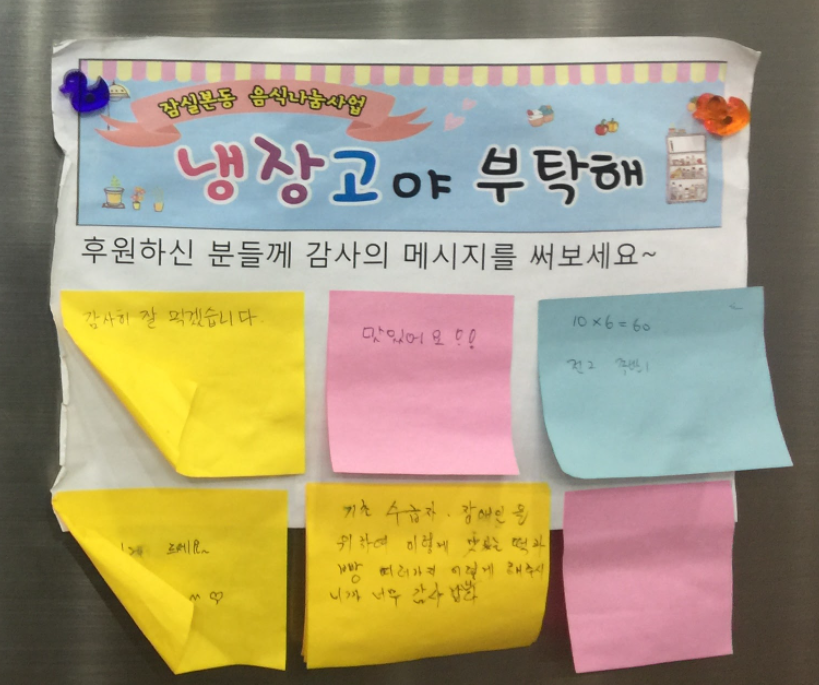 잠실본동 음식나눔사업
냉장고야 부탁해
후원하신 분들께 감사의 메시지를 써보세요~
감사히 잘 먹겠습니다.
맛있어요!!
10×6=60
전2 주방1
기초 수급자. 장애인을
위하여 이렇게 맛있는 떡과
빵 여러가지 이렇게 해주시
니까 너무 감사